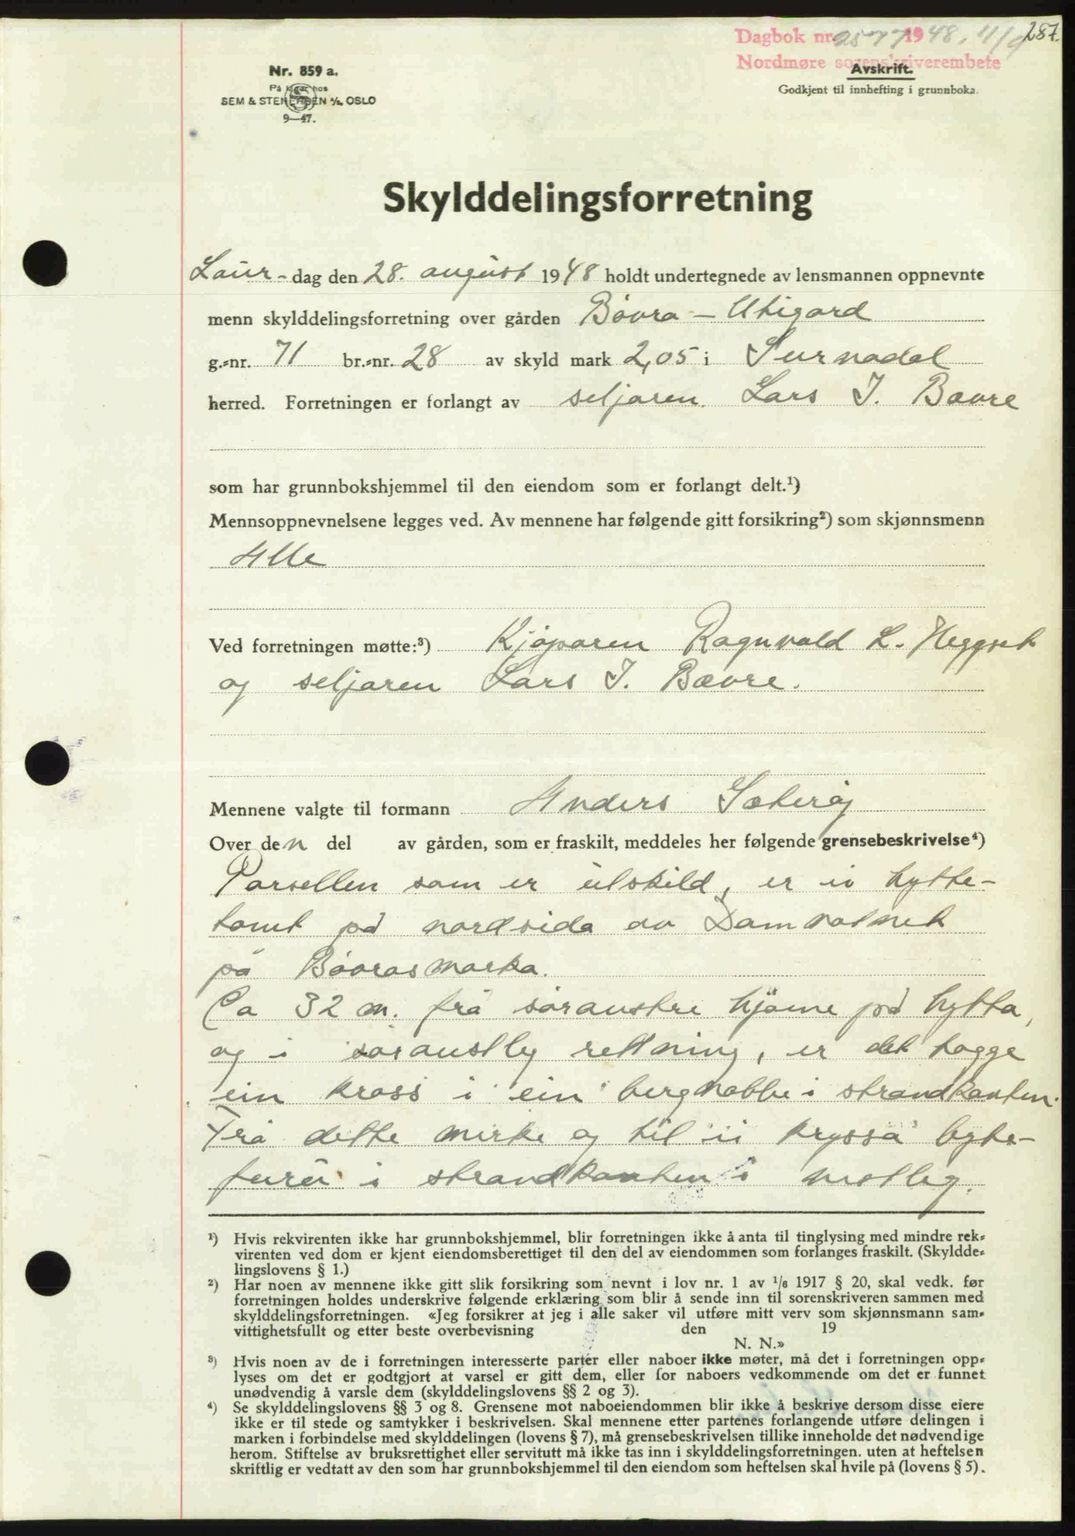 Dagbok nr. 2577 1948, 11/9 287.
Nordmøre sorenskriverembete
Avskrift.
Godkjent til innhefting i grunnboka.
Nr. 859 a.
På lager hos
SEM & STENERSEN A/S, OSLO
9—47.
Skylddelingsforretning
Laur-dag den 28. august 1948 holdt undertegnede av lensmannen oppnevnte
menn skylddelingsforretning over gården Bøvra — Utigard
g.-nr. 71 br.-nr. 28 av skyld mark 2,05 i Surnadal
herred. Forretningen er forlangt av seljaren Lars J. Bævre
som har grunnbokshjemmel til den eiendom som er forlangt delt.¹)
Mennsoppnevnelsene legges ved. Av mennene har følgende gitt forsikring²) som skjønnsmenn
Alle
Ved forretningen møtte:³) Kjøparen Ragnvald L. Heggset
og seljaren Lars J. Bævre.
Mennene valgte til formann Anders Sæterøy
Over den del av gården, som er fraskilt, meddeles her følgende grensebeskrivelse⁴)
Parsellen som er utskild, er ei hytte-
tomt på nordsida av Damvatnet
på Bøvrasmarka.
Ca 32 m. frå søraustre hjørne på hytta,
og i søraustleg rettning, er det hogge
ein kross i ein bergnabbe i strandkanten.
Frå dette merke og til ei kryssa byte-
furu i strandkanten i vestleg.
¹) Hvis rekvirenten ikke har grunnbokshjemmel, blir forretningen ikke å anta til tinglysing med mindre rek-
virenten ved dom er kjent eiendomsberettiget til den del av eiendommen som forlanges fraskilt. (Skyldde-
lingslovens § 1.)
²) Har noen av mennene ikke gitt slik forsikring som nevnt i lov nr. 1 av 1/6 1917 § 20, skal vedk. før
forretningen holdes underskrive følgende erklæring som blir å sende inn til sorenskriveren sammen med
skylddelingsforretningen. «Jeg forsikrer at jeg i alle saker vil utføre mitt verv som skjønnsmann sam-
vittighetsfullt og etter beste overbevisning den 19
N. N.»
³) Hvis noen av de i forretningen interesserte parter eller naboer ikke møter, må det i forretningen opp-
lyses om det er godtgjort at varsel er gitt dem, eller for naboers vedkommende om det er funnet
unødvendig å varsle dem (skylddelingslovens §§ 2 og 3).
⁴) Se skylddelingslovens §§ 3 og 8. Grensene mot naboeiendommen blir ikke å beskrive dersom disse eiere
ikke er til stede og samtykker i beskrivelsen. Skal mennene etter partenes forlangende utføre delingen i
marken i forbindelse med skylddelingen (lovens § 7), må grensebeskrivelsen tillike inneholde det nødvendige
herom. Stiftelse av bruksrettighet eller servitutt må ikke tas inn i skylddelingsforretningen, uten at heftelsen
skriftlig er vedtatt av den som har grunnbokshjemmel til den eiendom som heftelsen skal hvile på (lovens § 5).